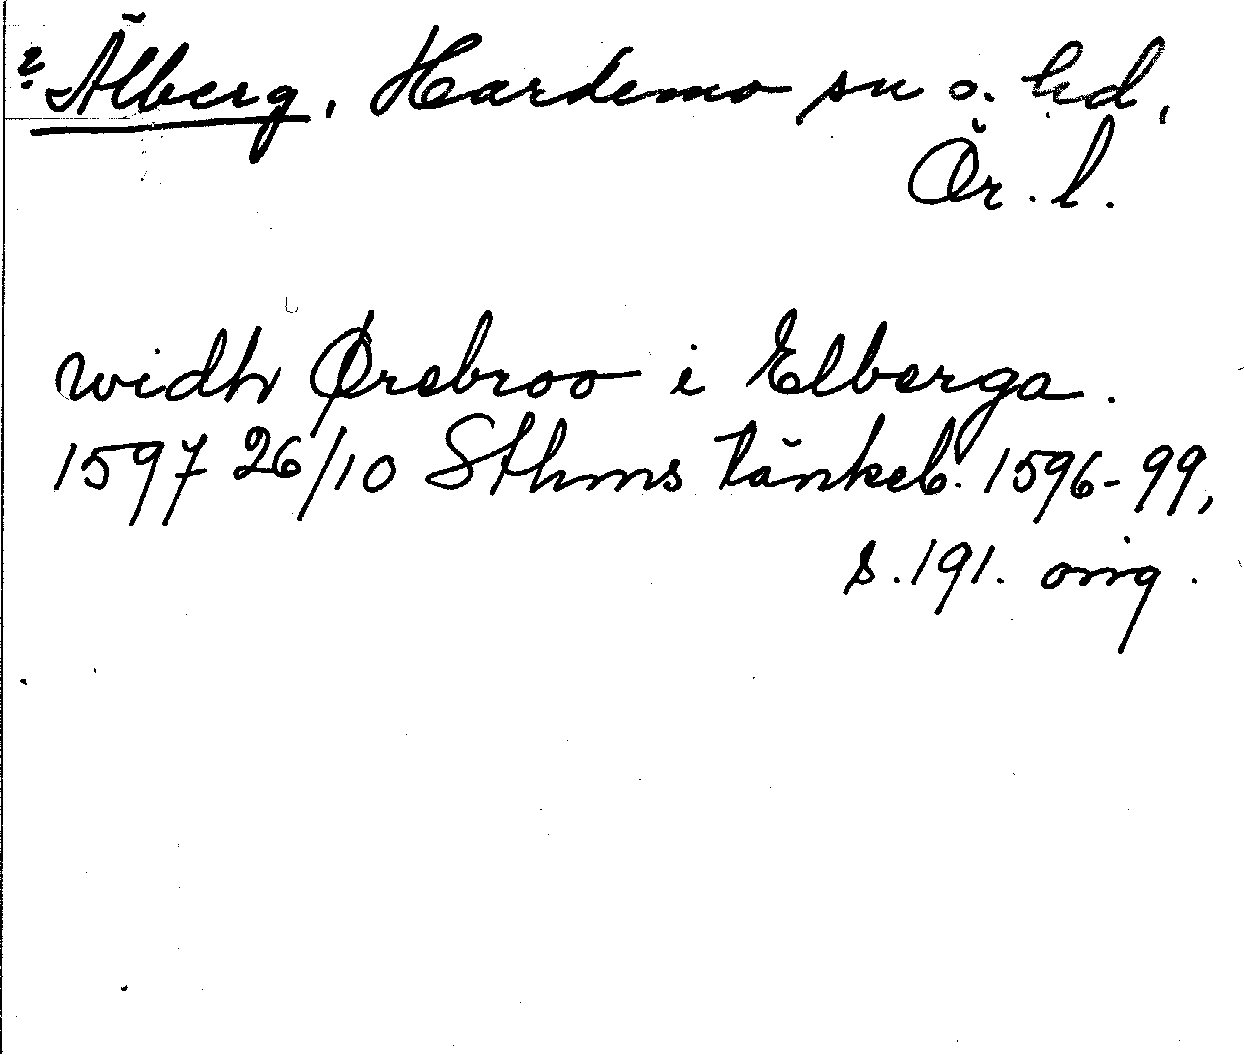 ? Älberg, Hardemo sn o. hd,
Ör. l.
widh Ørebroo i Elberga.
1597 26/10 Sthms tänkeb. 1596-99,
s. 191. orig.